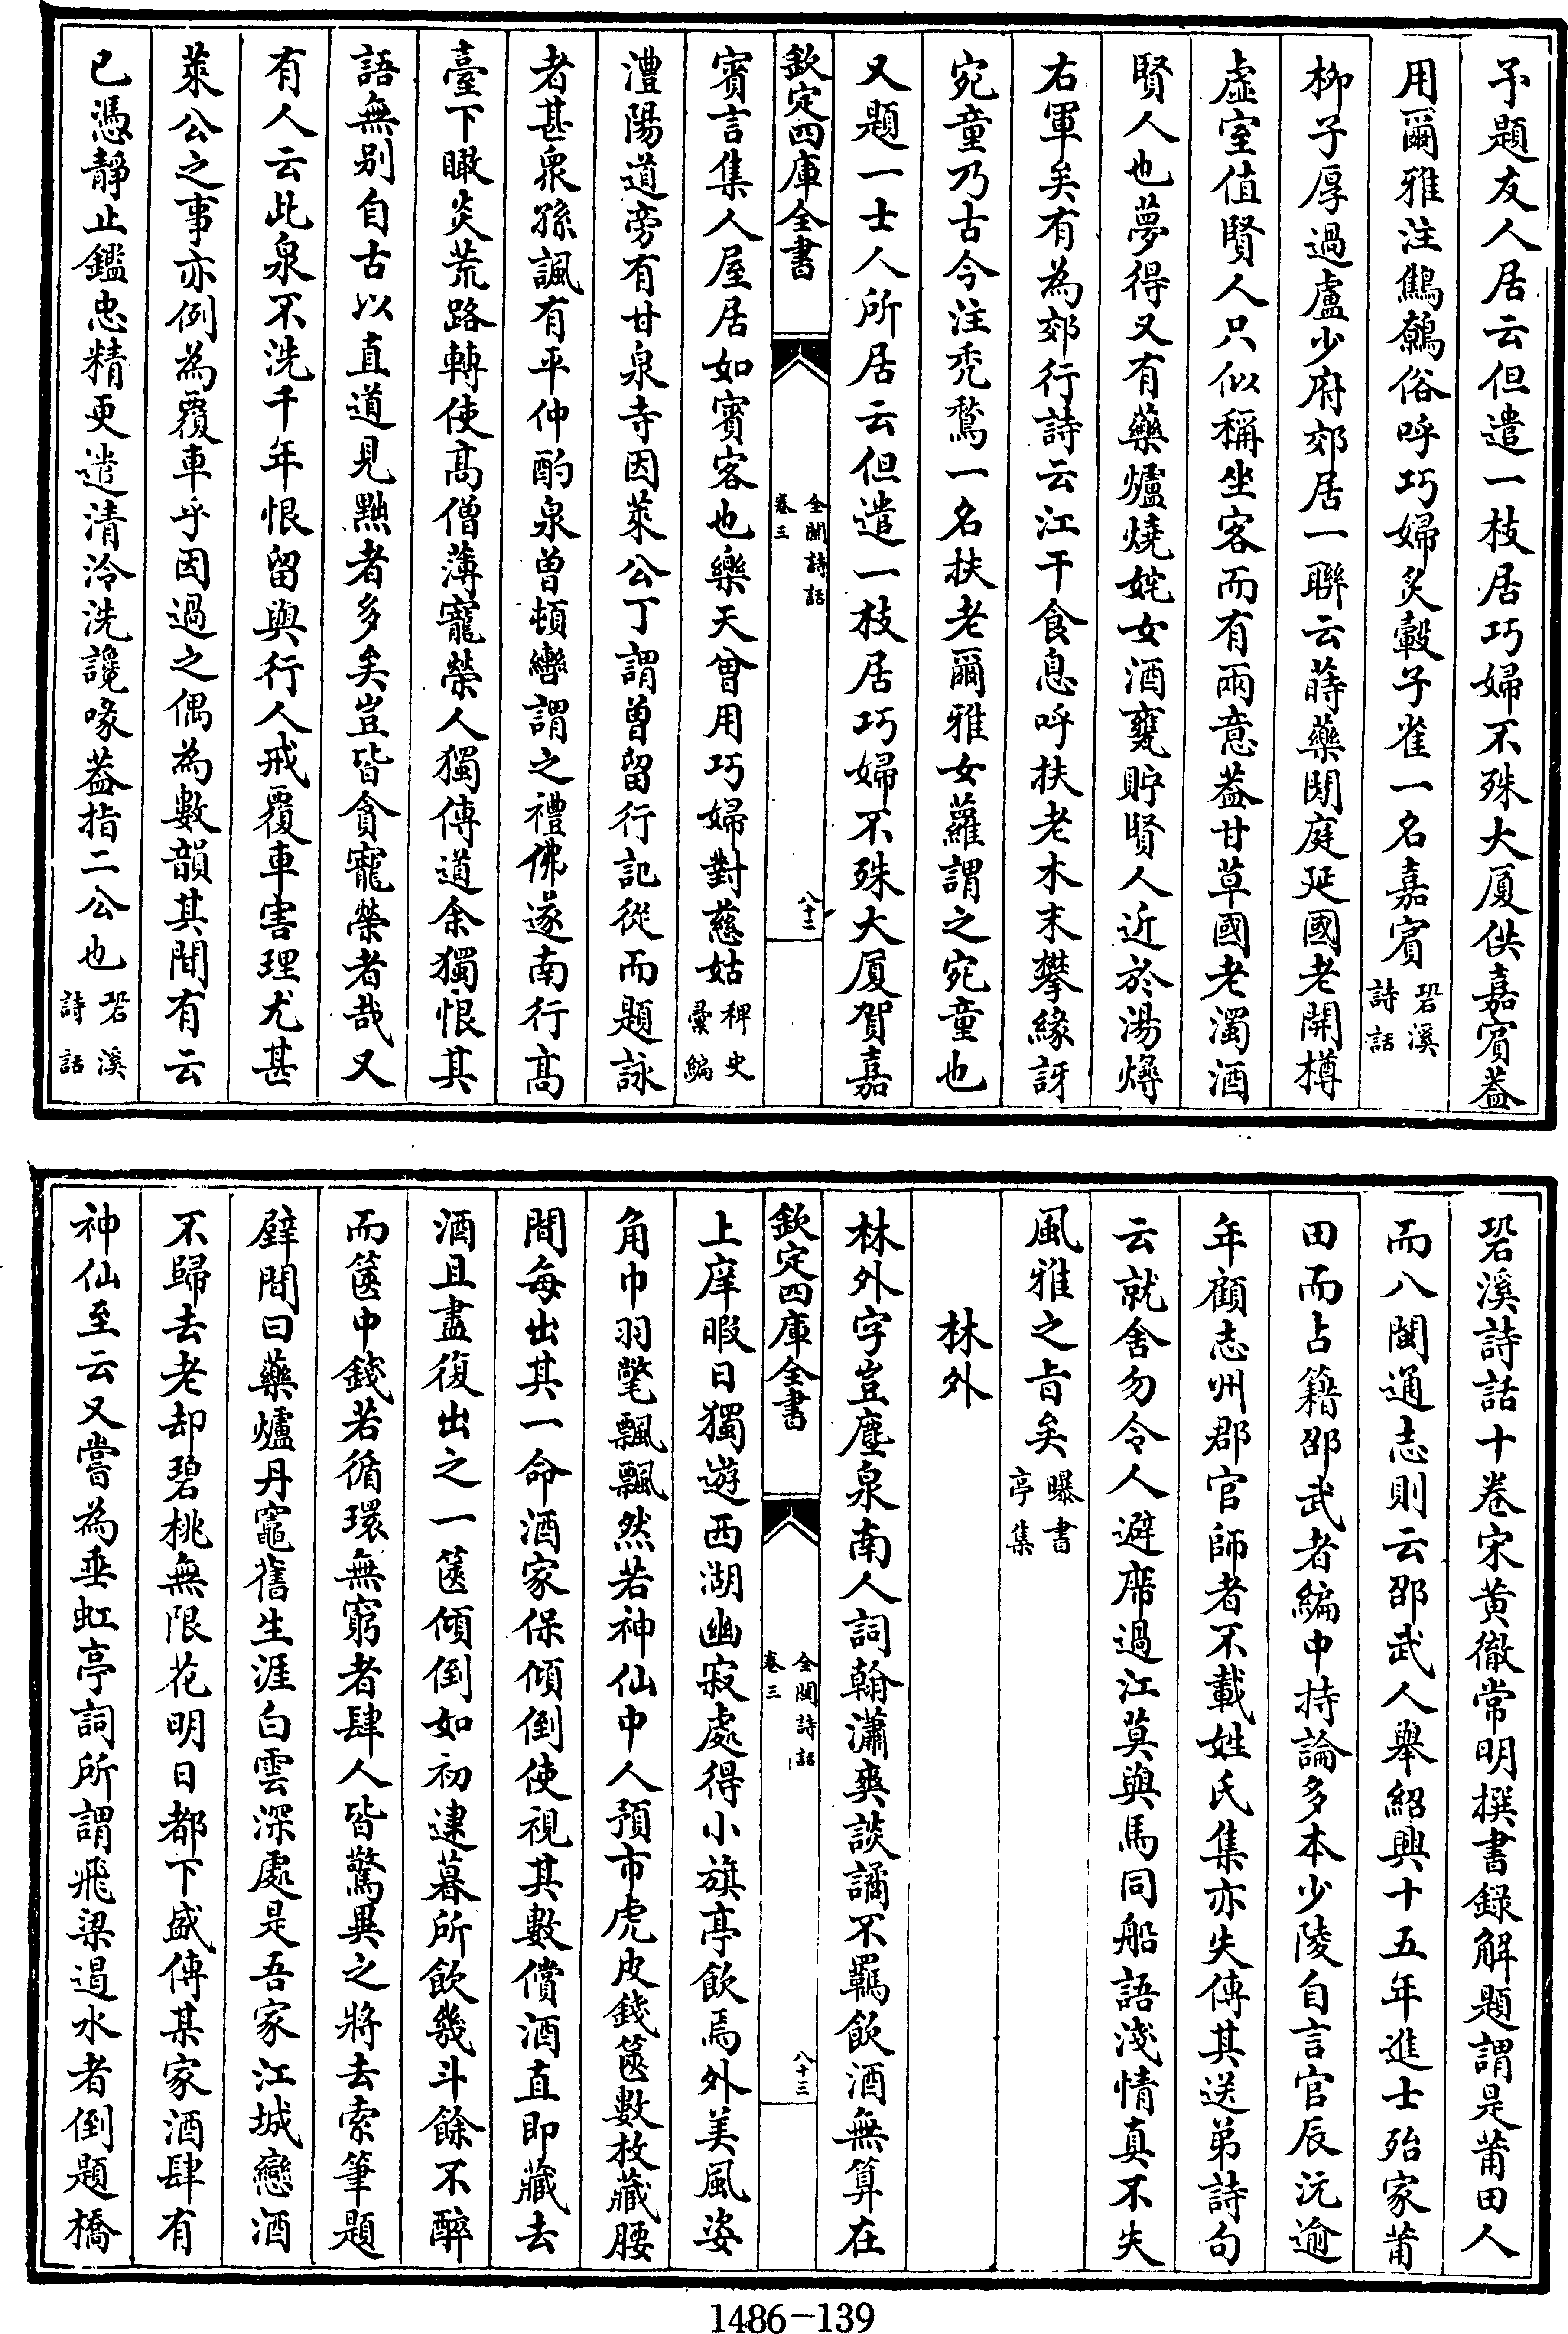 予題友人居云但遣一枝居巧婦不殊大厦供嘉賓葢
用爾雅注鷦鷯俗呼巧婦炙轂子雀一名嘉賓䂬溪詩話
栁子厚過盧少府郊居一聯云蒔藥閑庭延國老開樽
虛室值賢人只似稱坐客而有兩意葢甘草國老濁酒
賢人也夢得又有藥爐燒姹女酒甕貯賢人近於湯燖
右軍矣有為郊行詩云江干食息呼扶老木末攀緣訝
宛童乃古今注禿鶖一名扶老爾雅女蘿謂之宛童也
又題一士人所居云但遣一枝居巧婦不殊大厦賀嘉
欽定四庫全書
全閩詩話
卷三
八十二
賓言集人屋居如賓客也樂天曾用巧婦對慈姑稗史彙編
澧陽道旁有甘泉寺因萊公丁謂曾留行記從而題詠
者甚衆孫諷有平仲酌泉曾頓轡謂之禮佛遂南行髙
臺下瞰炎荒路轉使髙僧薄寵榮人獨傳道余獨恨其
語無别自古以直道見黜者多矣豈皆貪寵榮者哉又
有人云此泉不洗千年恨留與行人戒覆車害理尤甚
萊公之事亦例為覆車乎因過之偶為數韻其間有云
已憑静止鑑忠精更遣清泠洗讒喙葢指二公也䂬溪詩話
䂬溪詩話十卷宋黄徹常明撰書録解題謂是莆田人
而八閩通志則云邵武人舉紹興十五年進士殆家莆
田而占籍邵武者編中持論多本少陵自言官辰沅逾
年顧志州郡官師者不載姓氏集亦失傳其送弟詩句
云就舍勿令人避席過江莫與馬同船語淺情真不失
風雅之旨矣曝書亭集
林外
林外字豈塵泉南人詞翰瀟爽談譎不羈飲酒無算在
欽定四庫全書
全閩詩話
卷三
八十三
上庠暇日獨遊西湖幽寂處得小旗亭飲焉外美風姿
角巾羽氅飄飄然若神仙中人預市虎皮錢篋數枚藏腰
間每出其一命酒家保傾倒使視其數償酒直即藏去
酒且盡復出之一篋傾倒如初逮暮所飲幾斗餘不醉
而篋中錢若循環無窮者肆人皆驚異之將去索筆題
壁間曰藥爐丹竈舊生涯白雲深處是吾家江城戀酒
不歸去老却碧桃無限花明日都下盛傳某家酒肆有
神仙至云又嘗為垂虹亭詞所謂飛梁遏水者倒題橋
1486-139